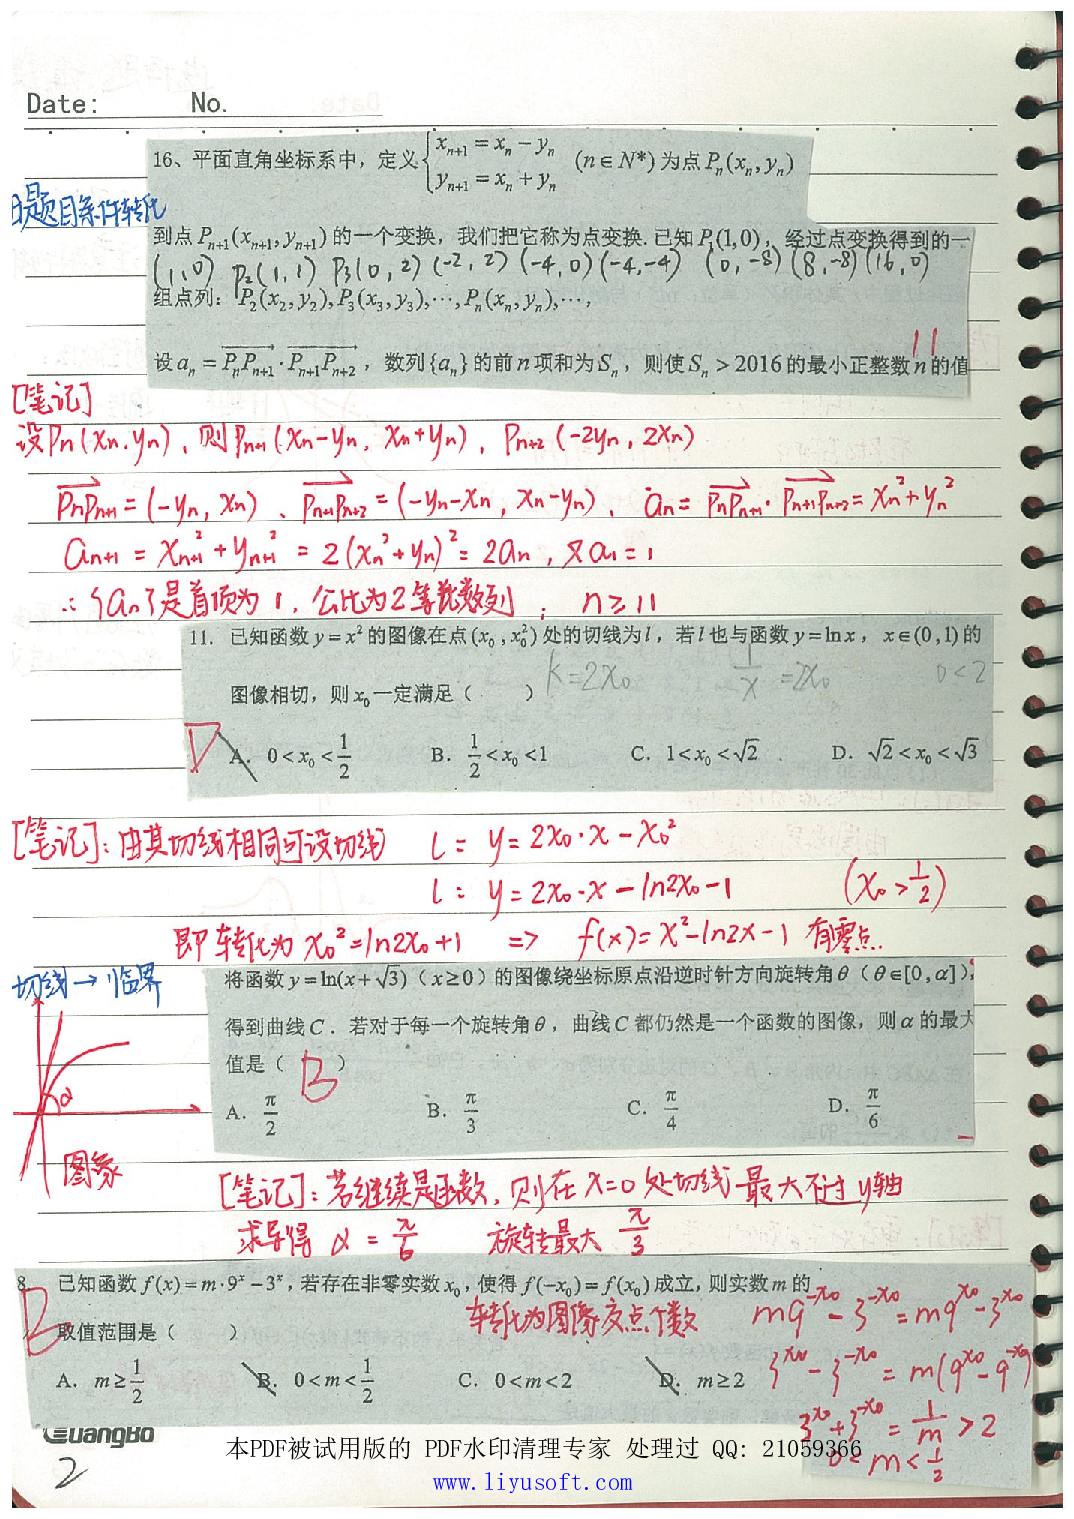 Date: No.
16、平面直角坐标系中，定义{x_{n+1}=x_n-y_n
y_{n+1}=x_n+y_n (n∈N*)为点P_n(x_n,y_n)
题目条件转化
到点P_{n+1}(x_{n+1},y_{n+1})的一个变换，我们把它称为点变换.已知P_1(1,0)，经过点变换得到的一
(1,0) P_2(1,1) P_3(0,2) (-2,2) (-4,0) (-4,-4) (0,-8) (8,-8) (16,0)
组点列：P_2(x_2,y_2),P_3(x_3,y_3),⋯,P_n(x_n,y_n),⋯,
设a_n=P_nP_{n+1}·P_{n+1}P_{n+2}，数列{a_n}的前n项和为S_n，则使S_n>2016的最小正整数n的值
11
[笔记]
设P_n(x_n.y_n)，则P_{n+1}(x_n-y_n, x_n+y_n)，P_{n+2}(-2y_n, 2x_n)
P_nP_{n+1}=(-y_n, x_n)、P_{n+1}P_{n+2}=(-y_n-x_n, x_n-y_n)，a_n=P_nP_{n+1}·P_{n+1}P_{n+2}=x_n²+y_n²
a_{n+1}=x_{n+1}²+y_{n+1}²=2(x_n²+y_n)²=2a_n，又a_1=1
∴{a_n}是首项为1，公比为2等比数列；n≥11
11. 已知函数y=x²的图像在点(x_0,x_0²)处的切线为l，若l也与函数y=lnx，x∈(0,1)的
K=2x_0 1/x=2x_0 0<2
图像相切，则x_0一定满足（ ）
D
A. 0<x_0<1/2 B. 1/2<x_0<1 C. 1<x_0<√2 D. √2<x_0<√3
[笔记]：由其切线相同可设切线 l：y=2x_0·x-x_0²
l：y=2x_0·x-ln2x_0-1 (x_0>1/2)
即转化为x_0²=ln2x_0+1 => f(x)=x²-ln2x-1有零点
切线→临界
将函数y=ln(x+√3)（x≥0）的图像绕坐标原点沿逆时针方向旋转角θ（θ∈[0,α]），
得到曲线C．若对于每一个旋转角θ，曲线C都仍然是一个函数的图像，则α的最大
值是（ B ）
A. π/2 B. π/3 C. π/4 D. π/6
α
图象
[笔记]：若继续是函数，则在x=0处切线最大不过y轴
求导得α=π/6 旋转最大π/3
8. 已知函数f(x)=m·9^x-3^x，若存在非零实数x_0，使得f(-x_0)=f(x_0)成立，则实数m的
转化为图像交点个数 m9^{-x_0}-3^{-x_0}=m9^{x_0}-3^{x_0}
B
取值范围是（ ）
A. m≥1/2 B. 0<m<1/2 C. 0<m<2 D. m≥2
3^{x_0}-3^{-x_0}=m(9^{x_0}-9^{-x_0})
3^{x_0}+3^{-x_0}=1/m>2
0<m<1/2
GuangBo
本PDF被试用版的 PDF水印清理专家 处理过 QQ: 21059366
www.liyusoft.com
2